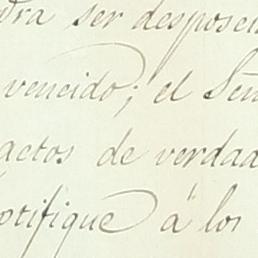 dra ser desposei
vencido; el Señ
actos de verdad
otifique á los